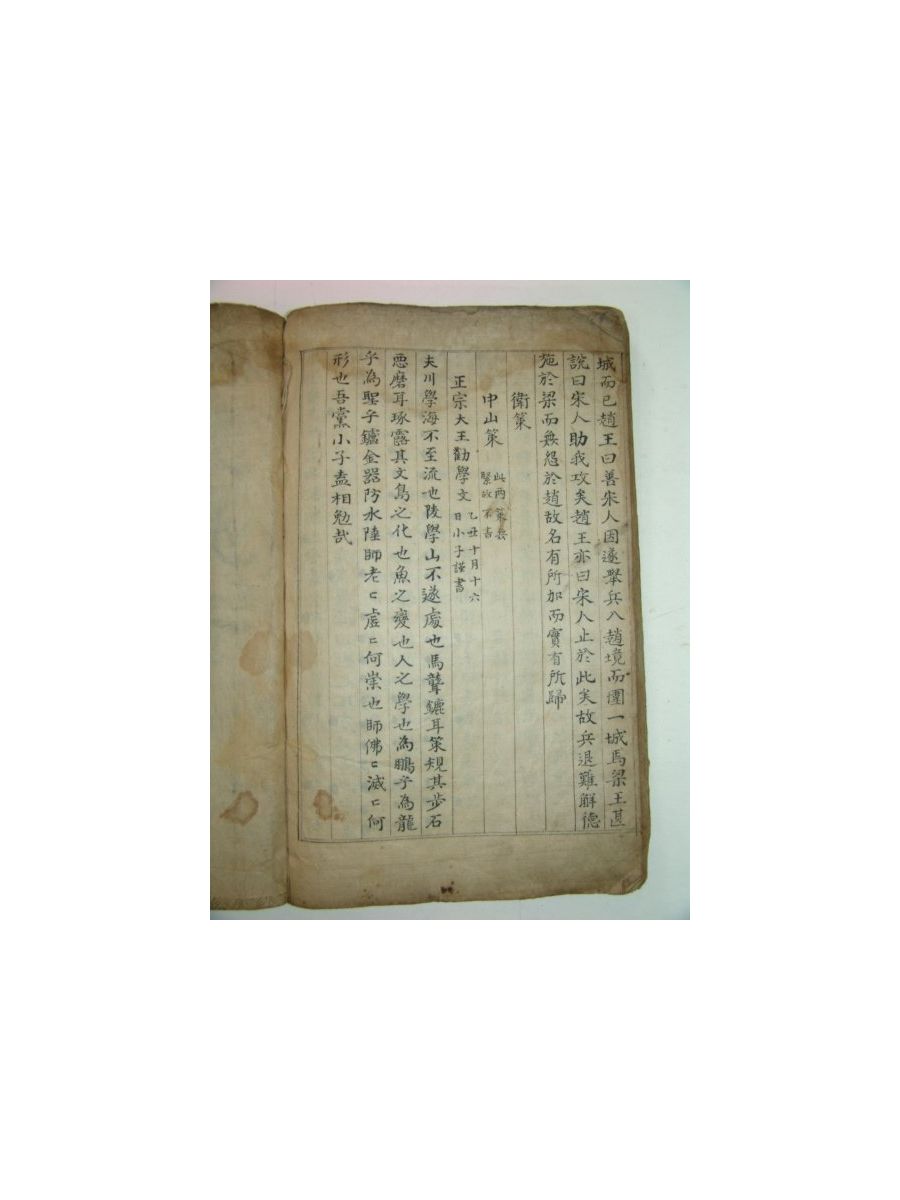 城而已趙王曰善宋人因遂擧兵入趙境而圍一城焉梁王甚
說曰宋人助我攻矣趙王亦曰宋人止於此矣故兵退難解德
施於梁而無怨於趙故名有所加而實有所歸
衛策
中山策 此兩策無緊故不書
正宗大王勸學文 乙丑十月十六日小子謹書
夫川學海不至流也陵學山不遂處也馬聾鑣耳策規其步石
悪磨耳琢露其文鳥之化也魚之變也人之學也為鵬乎為龍
乎為聖乎鑪金器防水陸師老〻虛〻何崇也師佛〻滅〻何
形也吾黨小子盍相勉哉